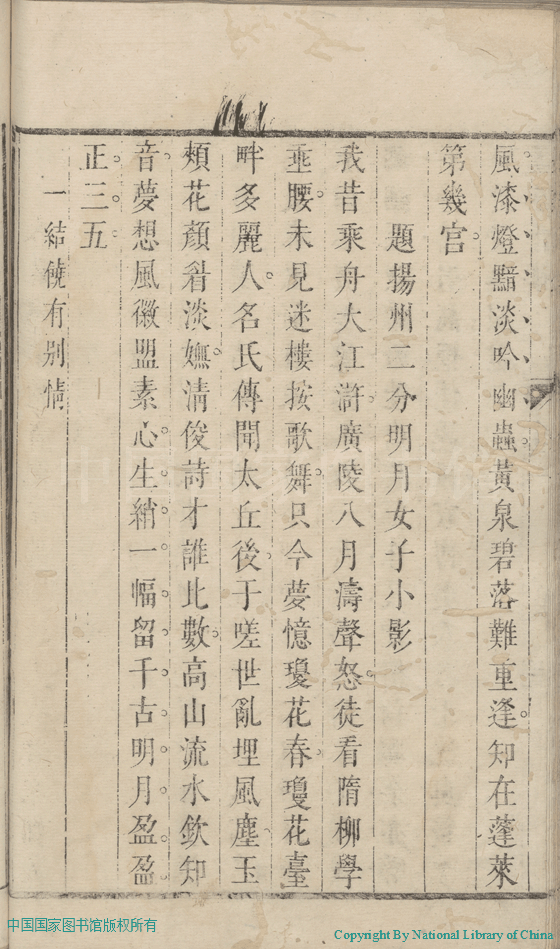 風漆燈黯淡吟幽蟲黃泉碧落難重逢知在蓬萊
第幾宮
題揚州二分明月女子小影
我昔乘舟大江滸廣陵八月濤聲怒徒看隋柳學
垂腰未見迷樓按歌舞只今夢憶瓊花春瓊花臺
畔多麗人名氏傳聞太丘後于嗟世亂埋風塵玉
頰花顏看淡嫵清俊詩才誰比數高山流水欽知
音夢想風徽盟素心生綃一幅留千古明月盈盈
正三五
一結饒有別情
中国国家图书馆版权所有
Copyright By National Library of China